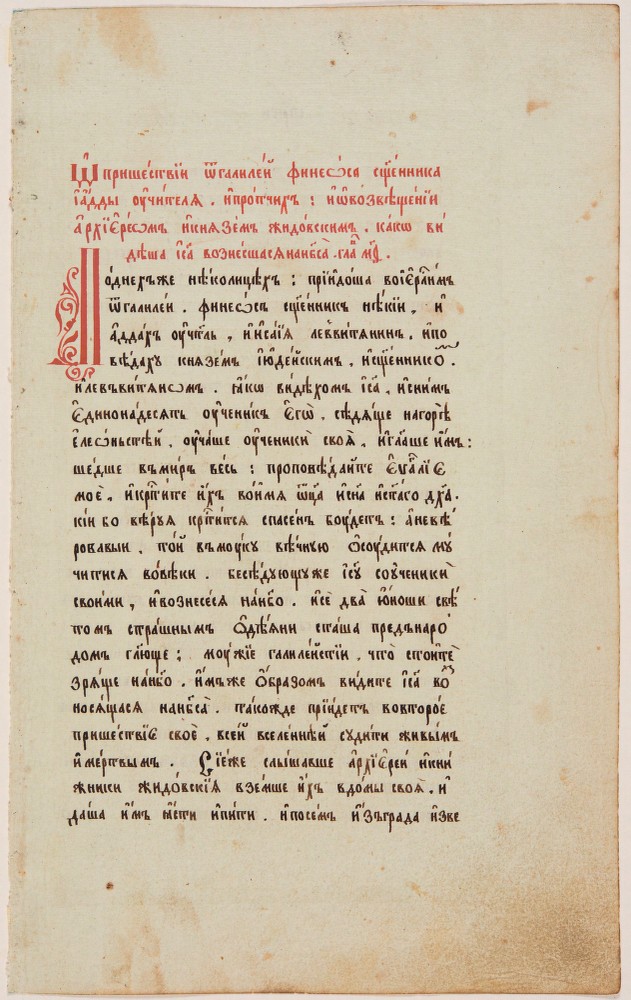 Ѡ҆ пришествїи ѿгалиле́й финеѡ́са сщ҃е́нника
і҆а́дды оу҆чи́телѧ . и҆про́тчихъ : и҆ѡ҆возвѣще́нїи
а҆рхїе҆ре́ѡмъ и҆кнѧзе́мъ жидо́вскимъ . ка́кѡ ви
дѣ́ша і҆с҃а вознесшасѧнанб҃са̀ . гла҃ м҃д .
По́днехъже нѣ́колицѣхъ : прїи҆до́ша воі҆ер҇лимъ
ѿгалиле́и . финеѡ́съ сщ҃е́нникъ нѣ́кїи , и҆
а҆дда́хъ оу҆чт҃ль , и҆и҆са́їѧ левви́тѧнинъ . и҆по
вѣ́даху кнѧзе́мъ і҆ю҆де́йскимъ , и҆сщ҃е́ннико́м .
и҆левъви́тѧнѡмъ . ꙗ҆́кѡ ви́дѣхомъ і҆с҃а , и҆сни́мъ
є҆ди́нонадесѧть оу҆чени́къ є҆гѡ̀ , сѣдѧ́ще нагорѣ̀
є҆леѡ́ньстѣй , оу҆ча́ше оу҆ченикѝ своѧ̀ , и҆гл҃аше и҆̀мъ :
ше́дше въми́ръ ве́сь : проповѣ́дайте є҆у҃а́лїе
моѐ , и҆кр҇ти́те и҆̀хъ во́имѧ ѿц҃а и҆сн҃а и҆ст҃а́го дх҃а .
кі́и бо вѣ́руѧ кр҇ти́тсѧ спасе́нъ боу́детъ : а҆невѣ́
ровавыи , то́й въмоу́ку вѣ́чную ѡ҆су́дитсѧ му́
читисѧ вовѣ́ки . бесѣ́дующуже і҆с҃у соу҆ченикѝ
свои́ми , и҆вознесе́сѧ нан҃бо . и҆сѐ два̀ ю҆́ноши свѣ́
томъ стра́шнымъ ѡ҆дѣ́ѧни ста́ша предънаро́
домъ гл҃юще ; моу́жїе галиле́йстїи , что̀ стои́те
зрѧ́ще нан҃бо . и҆́мъже ѡ҆́бразомъ ви́дите і҆с҃а воз
носѧ́щасѧ нанб҃са̀ . та́кожде прїи́детъ вовторо́е
прише́ствїе своѐ , все́й вселе́ннѣй суди́ти живы́мъ
и҆ме́ртвымъ . Сїѐже слы́шавше а҆рхїе҆ре́и и҆кни́
жники жидо́вскїѧ взе́мше и҆̀хъ вдо́мы своѧ̀ , и҆
да́ша и҆̀мъ ꙗ҆́сти и҆пи́ти . и҆посе́мъ и҆зъгра́да и҆зве